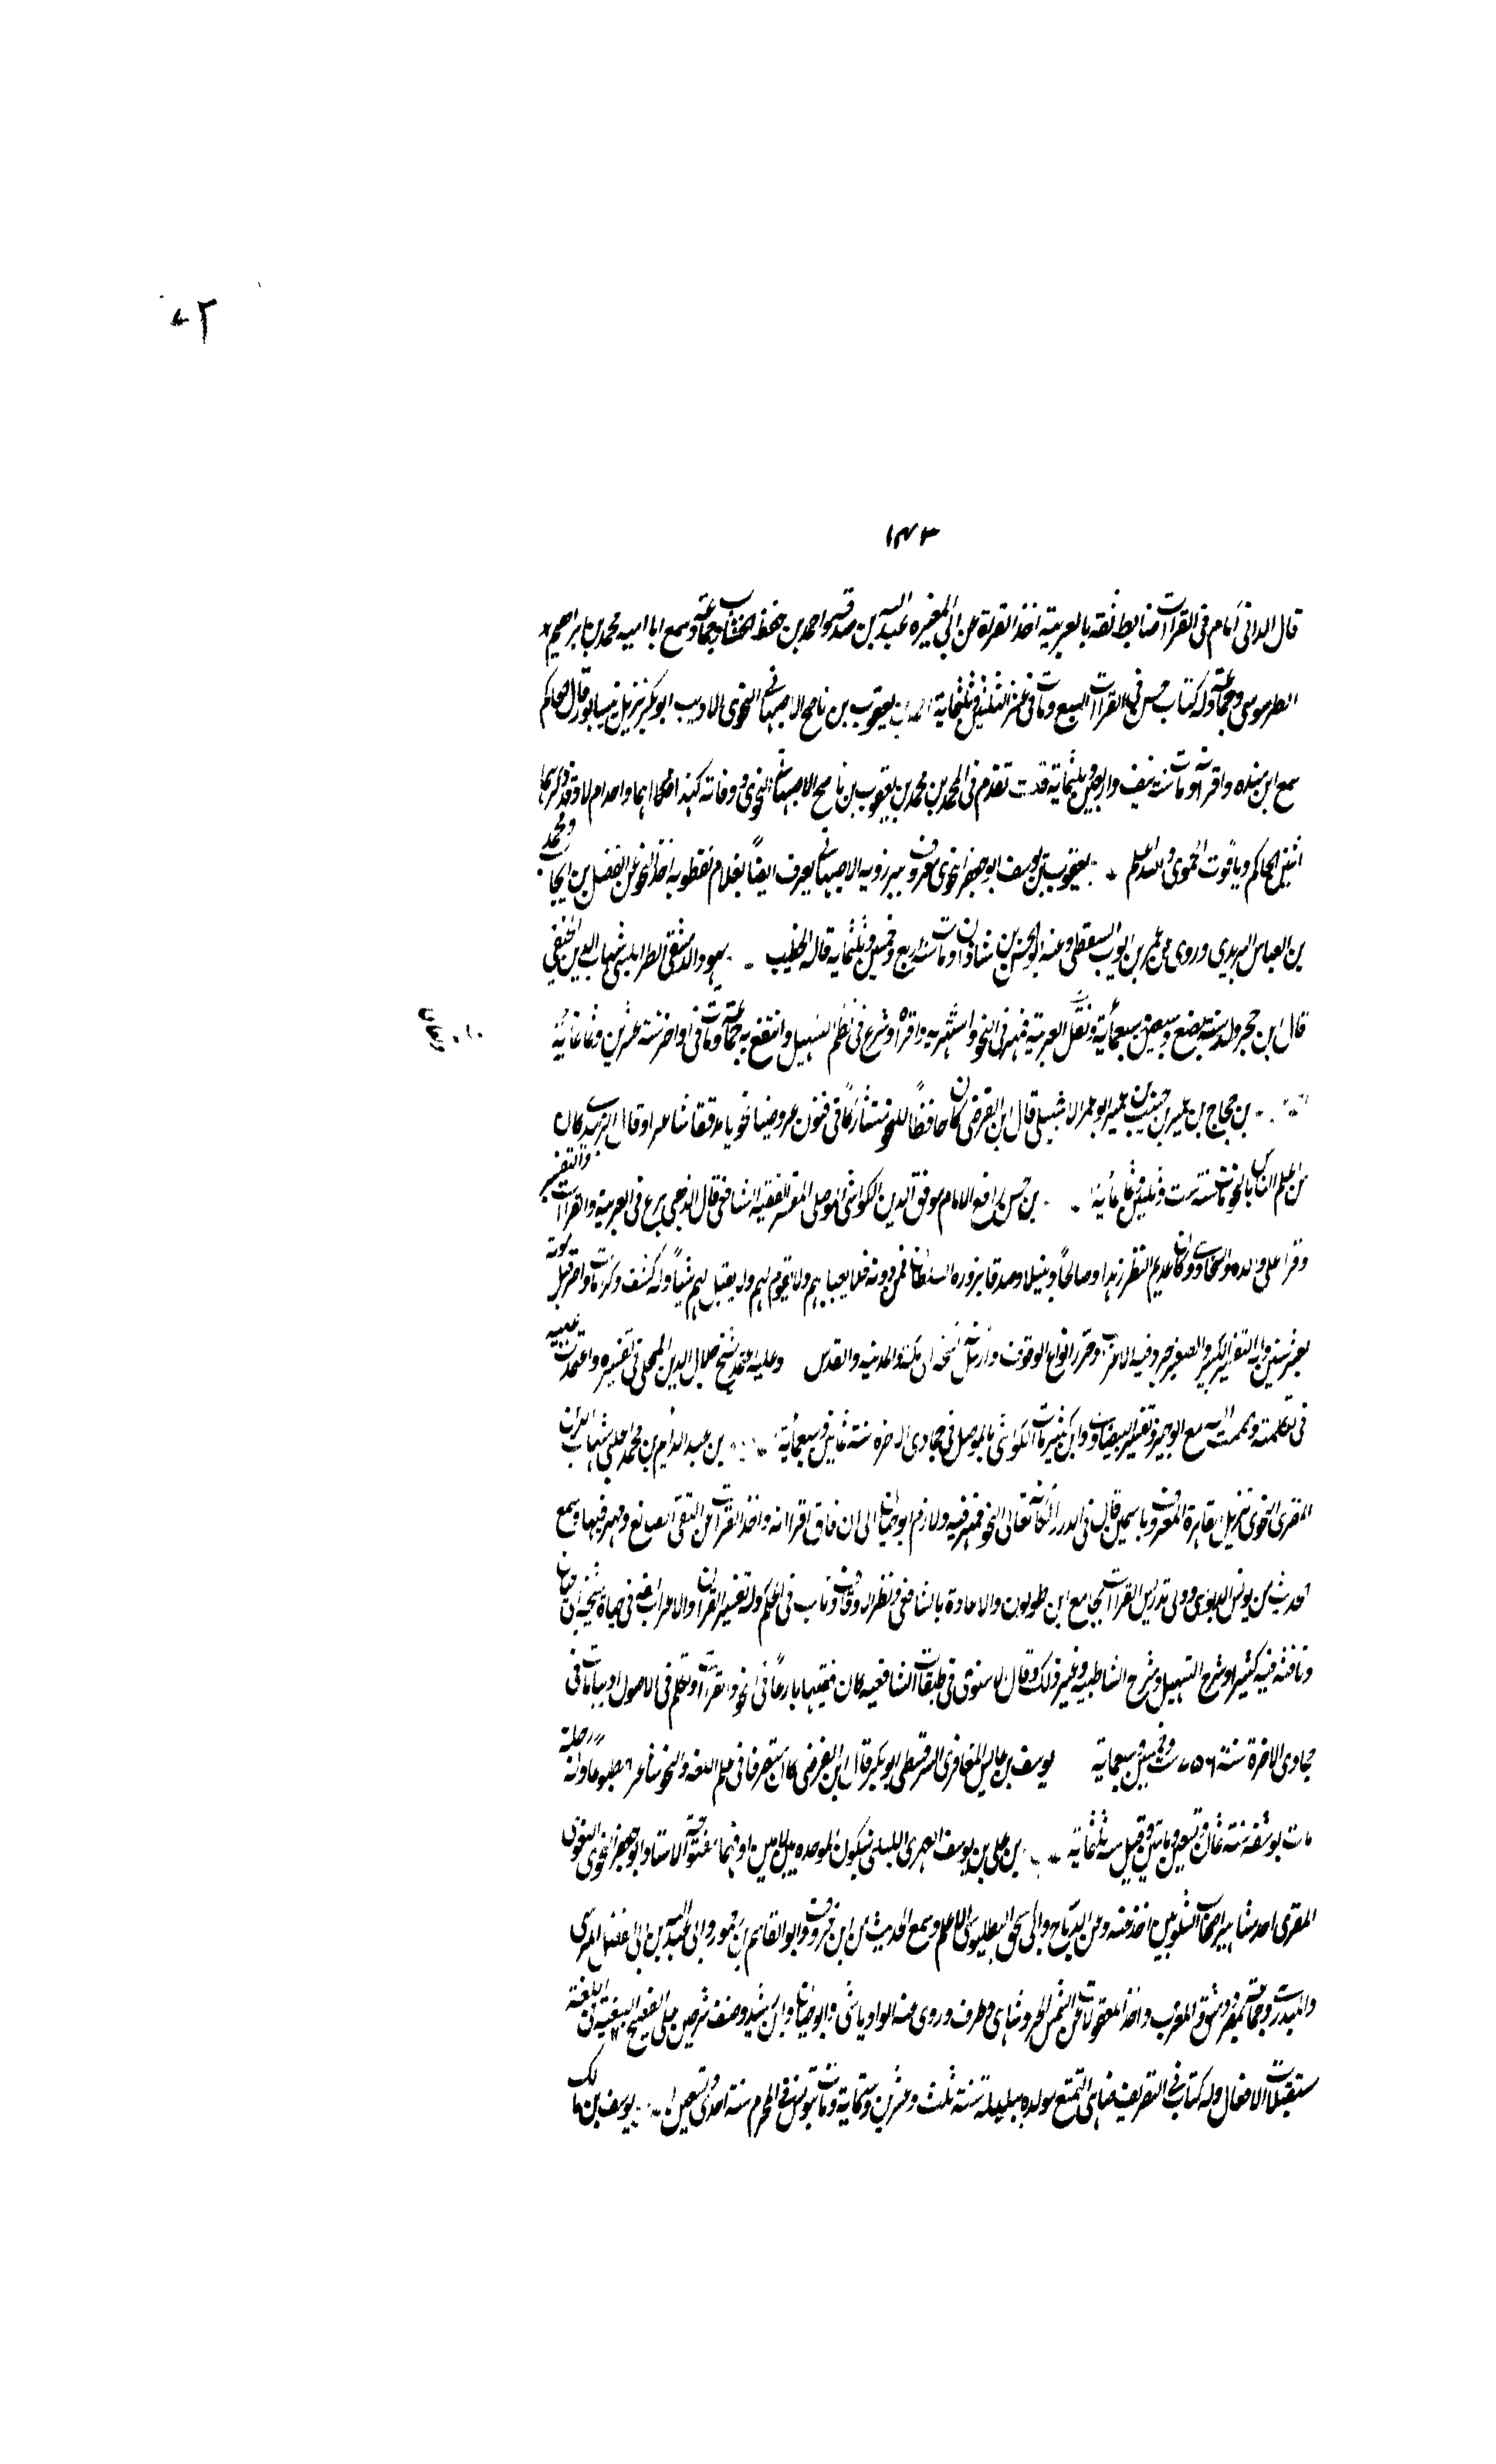 ٧٢
١٤٣
قال الدانى امام فى القرآت ضابط ثقة بالعربية اخذ القراة عن ابى المغيره عبيد الله بن صدقه واحمد بن حفظ الخشاب وجماعة وسمع ابا امية محمد بن ابراهيم
الطرسوسى وجماعة وله كتاب حسن فى القراآت السبع ومات فى عشر الثلثين وثلثماية يعقوب بن ناصح الاصبهانى النحوى الاديب ابو بكر نزيل نيسابور قال الحاكم
سمع ابن منده واقرانه ومات سنة نيف واربعين وثلثماية قلت تقدم فى المحمد بن محمد بن يعقوب بن ناصح الاصبهانى النحوى ووفاته كهذا
اثنين الحاكم وياقوت الحموى والله اعلم يعقوب بن يوسف ابو جعفر النحوى المعروف ببرزويه الاصبهانى يعرف ايضاً بغلام نفطويه اخذ النحو عن الفضل بن الحباب ومحمد
بن العباس اليزيدى وروى عن عمر بن ايوب السقطى وعنه ابو الحسن بن شاذان ومات سنة اربع وخمسين وثلثماية قاله الخطيب يهود الدمشقى الطرابلسى شهاب الدين الحنفى
قال ابن حجر ولد سنة بضع وسبعين وسبعماية وتعلق العربية فمهر فى النحو واشتهر به واقرا وشرع فى نظم التسهيل وانتفع به جماعة ومات فى اواخر سنة عشرين وثمانماية
بن حجاج بن عمير بن حبيب بن عمير ابو عمر الاشبيلى قال ابن الفرضى كان حافظاً للنحو متشاركاً فى فنون عروضيا نحويا مدققا شاعرا وقال الزبيدى كان
من اعلم الناس بالنحو مات سنة ست وثلثين وثلثماية بن حسن بن رافع الامام موفق الدين الكواشى الموصلى المفسر الفقيه الشافعى قال الذهبى برع فى العربية والقراآت والتفسير
وقرا على والده والسخاوى وكان عديم النظير زهدا وصلاحاً وتبتلا وصدقا يزوره السلطان فمن دونه فلا يعبا بهم ولا يقوم لهم ولا يقبل لهم شيئاً وله كشف وكرامات واضر قبل موته
بعشر سنين وله التفسير الكبير والصغير جود فيه الاعراب وحرر انواع الوقوف وارسل منه نسخة الى مكة والمدينه والقدس وعليه اعتمد الشيخ جلال الدين المحلى فى تفسيره واعتمدت عليه
فى تكملته مع الوجيز وتفسير البيضاوى وابن كثير مات الكواشى بالموصل فى جمادى الاخره سنة ثمانين وستماية بن عبد الدايم بن محمد الحلبى شهاب الدين
المقرى النحوى نزيل القاهرة المعروف بالسمين قال فى الدرر الكامنة تعانى النحو فمهر فيه ولازم ابو حيان الى ان فاق اقرانه واخذ القرآت عن التقى الصايغ ومهر فيها وسمع
الحديث من يونس الدبوسى وولى تدريس القراآت بجامع ابن طولون والاعادة بالشافعى ونظر الاوقاف وناب فى الحكم وله تفسير القران والاعراب الفه فى حياة شيخه ابى حيان
وناقشه فيه كثيرا وشرح التسهيل وشرح الشاطبيه وغير ذلك وقال الاسنوى فى طبقات الشافعيه كان فقيها بارعاً فى النحو والقرات وتكلم فى الاصول اديبا مات فى
جمادى الاخرة سنة ٧٥٦ ست وخمسين وسبعماية يوسف بن عابس المعافرى السرقسطى ابو بكر قال ابن الفرضى كان متصرفا فى علم اللغه والنحو شاعرا مطبوعا وله رحلة
مات بوشقه سنة ثمان وتسعين ومايتين وقيل سنة ثلثماية بن على بن يوسف الفهرى اللبلى بسكون الموحده بين لامين اولهما مفتوحة الاستاد ابو جعفر النحوى اللغوى
المقرى احد مشاهير اصحاب الشلوبين اخذ عنه وعن الدباج وابى اسحق البطليوسى الاعلم وسمع الحديث من ابن خروف وابو القاسم بن رحمون وابى عبد الله بن ابى الفضل المرسى
والمنذرى وجماعة بمصر ودمشق والمغرب واخذ المعقولات عن الشمس الخسروشاهى وطرف وروى عنه الوادياشى وابو حيان وابن رشيد وصنف شرحين على الفصيح البغية فى اللغة
مستقبلات الافعال وله كتاب فى التصريف ضاهى الممتع مولده بلبله سنة ثلث وعشرين وستماية ومات بتونس فى المحرم سنة احدى وتسعين يوسف بن مالك